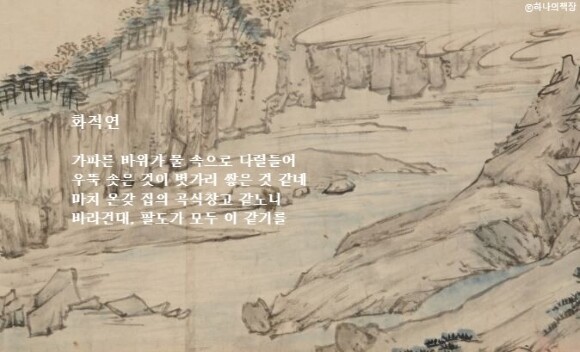 ©하나의책장
화적연
가파른 바위가 물 속으로 다렬들어
우뚝 솟은 것이 볏가리 쌓은 것 같네
마치 온갖 집의 곡식창고 같노니
바라건대, 팔도가 모두 이 같기를